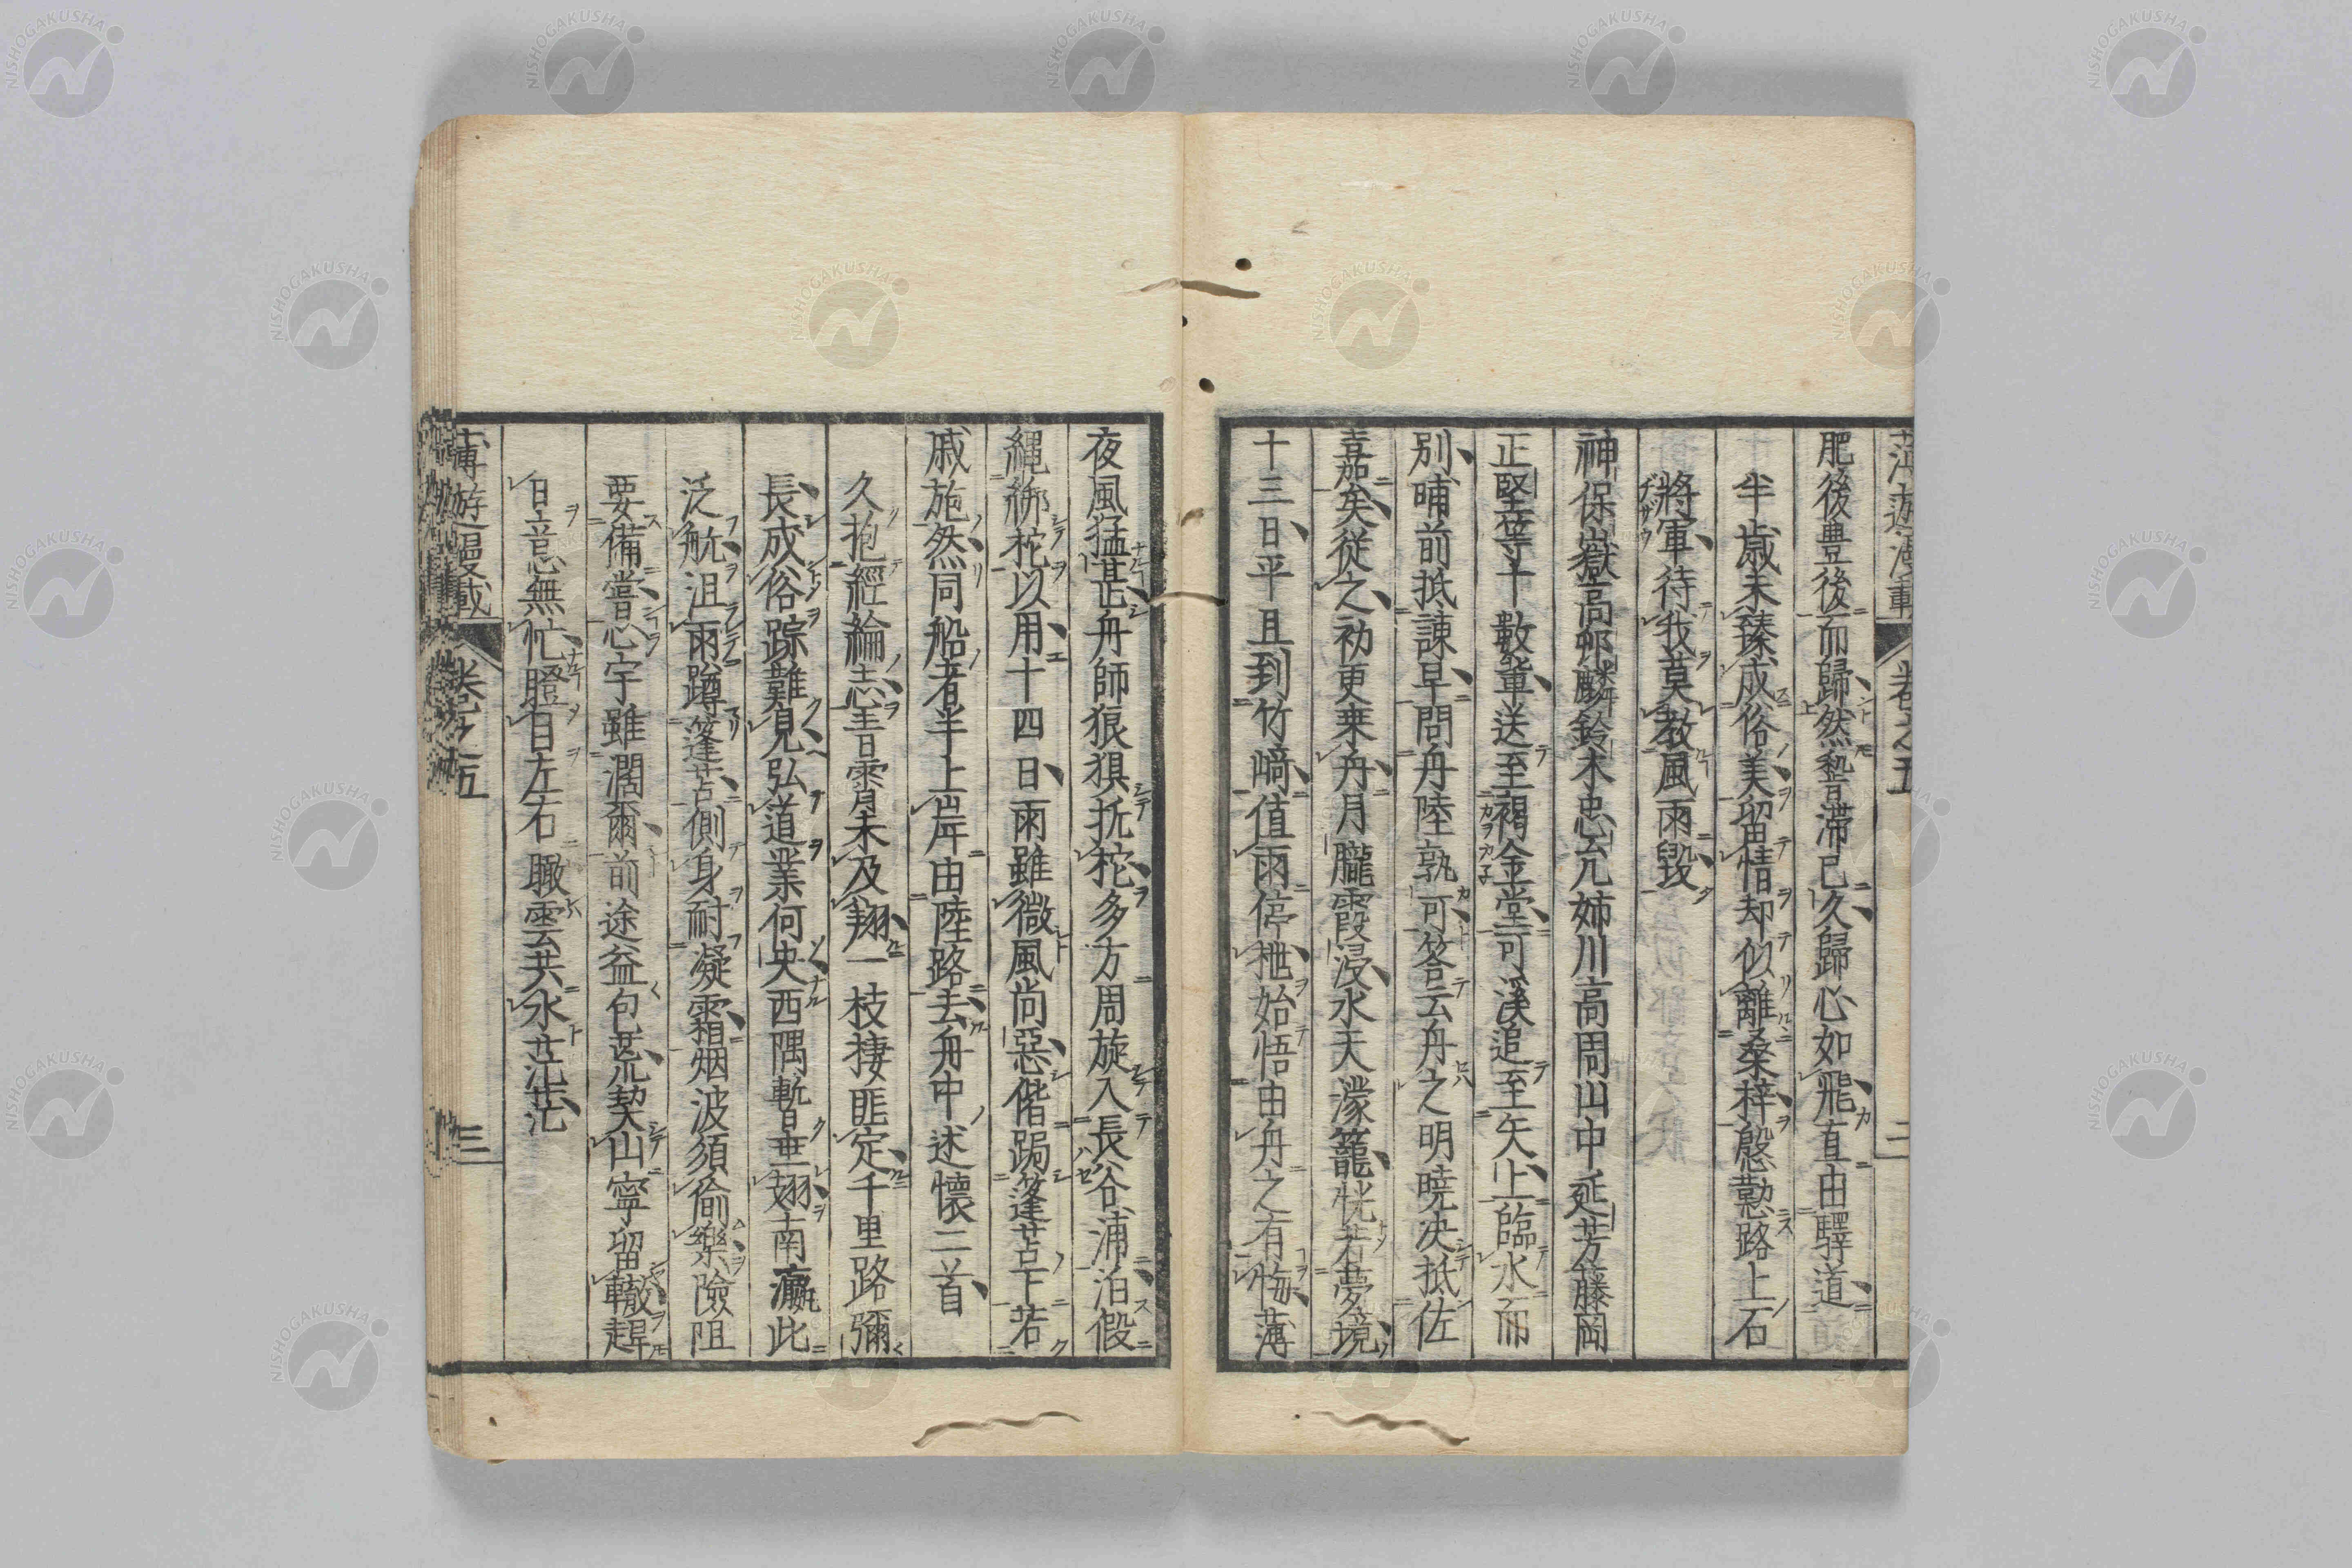 肥後豊後而歸然暫滯已久歸心如飛直由驛道
半歲未臻成俗美留情却似離桑梓慇懃路上石
將軍待我莫教風雨毀
神保嶽高邨麟鈴木忠六姉川高周山中延芳籐岡
正堅等十數輩送至裼金堂可溪追至矢上臨水而
別晡前抵諫早問舟陸孰可答云舟之明曉决抵佐
嘉矣從之初更乗舟月朧霞浸水天濛籠恍若夢境
十三日平旦到竹﨑值雨停𣑥始悟由舟之有悔薄
夜風猛甚舟師狼狽抗柁多方周旋入長谷浦泊假
繩綁柁以用十四日雨雖微風尚惡偕跼篷苫下若
戚施然同船者半上岸由陸路去舟中述懷三首
久抱經綸志青霄未及翔一枝捿匪定千里路彌
長成俗踪難見弘道業何央西隅暫垂翅南瀛此
泛航沮雨蹲篷苫側身耐凝霜烟波須偷樂險阻
要備嘗心宇雖濶爾前途益包荒契山寧留轍趕
日意無忙瞪目左右瞰雲共水茫茫
薄遊漫載
卷之五
三
卷之五
二